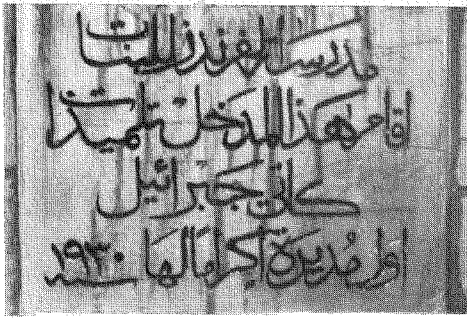 مدرسة الفرندز للبنات
اقام هذا المدخل تلميذات
كاتي جَبرائيل
اول مُديرة اكراما لها سنة ١٩٣٠